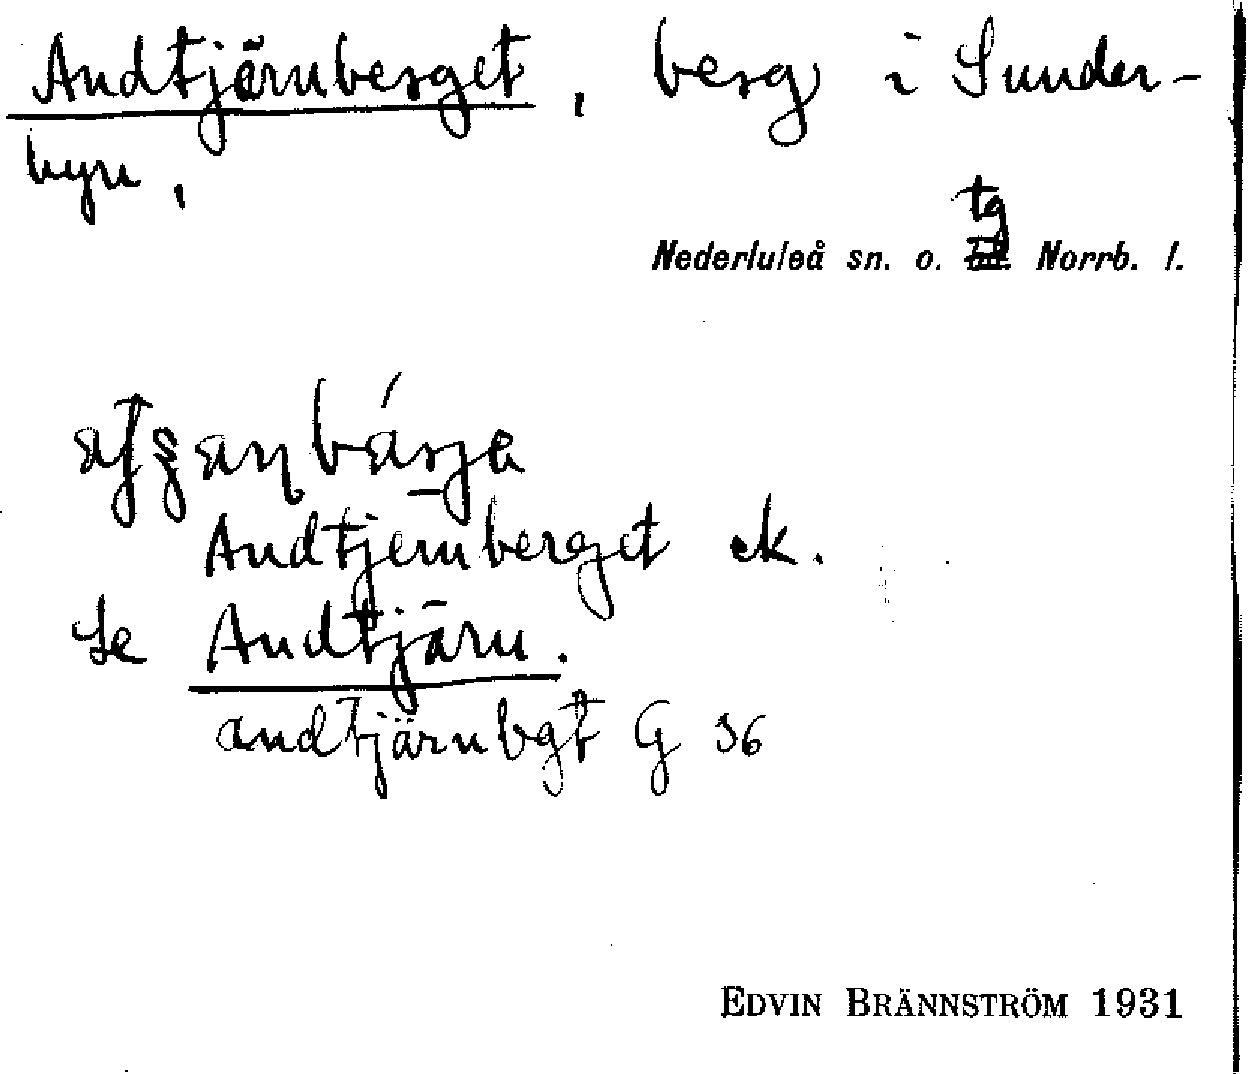 Andtjärnberget, berg i Sunder-
byn,
tg
Nederluleå sn. o. Norrb. l.
Andtjernberget ek.
Se Andtjärn.
andtjärnbgt G 36
EDVIN BRÄNNSTRÖM 1931